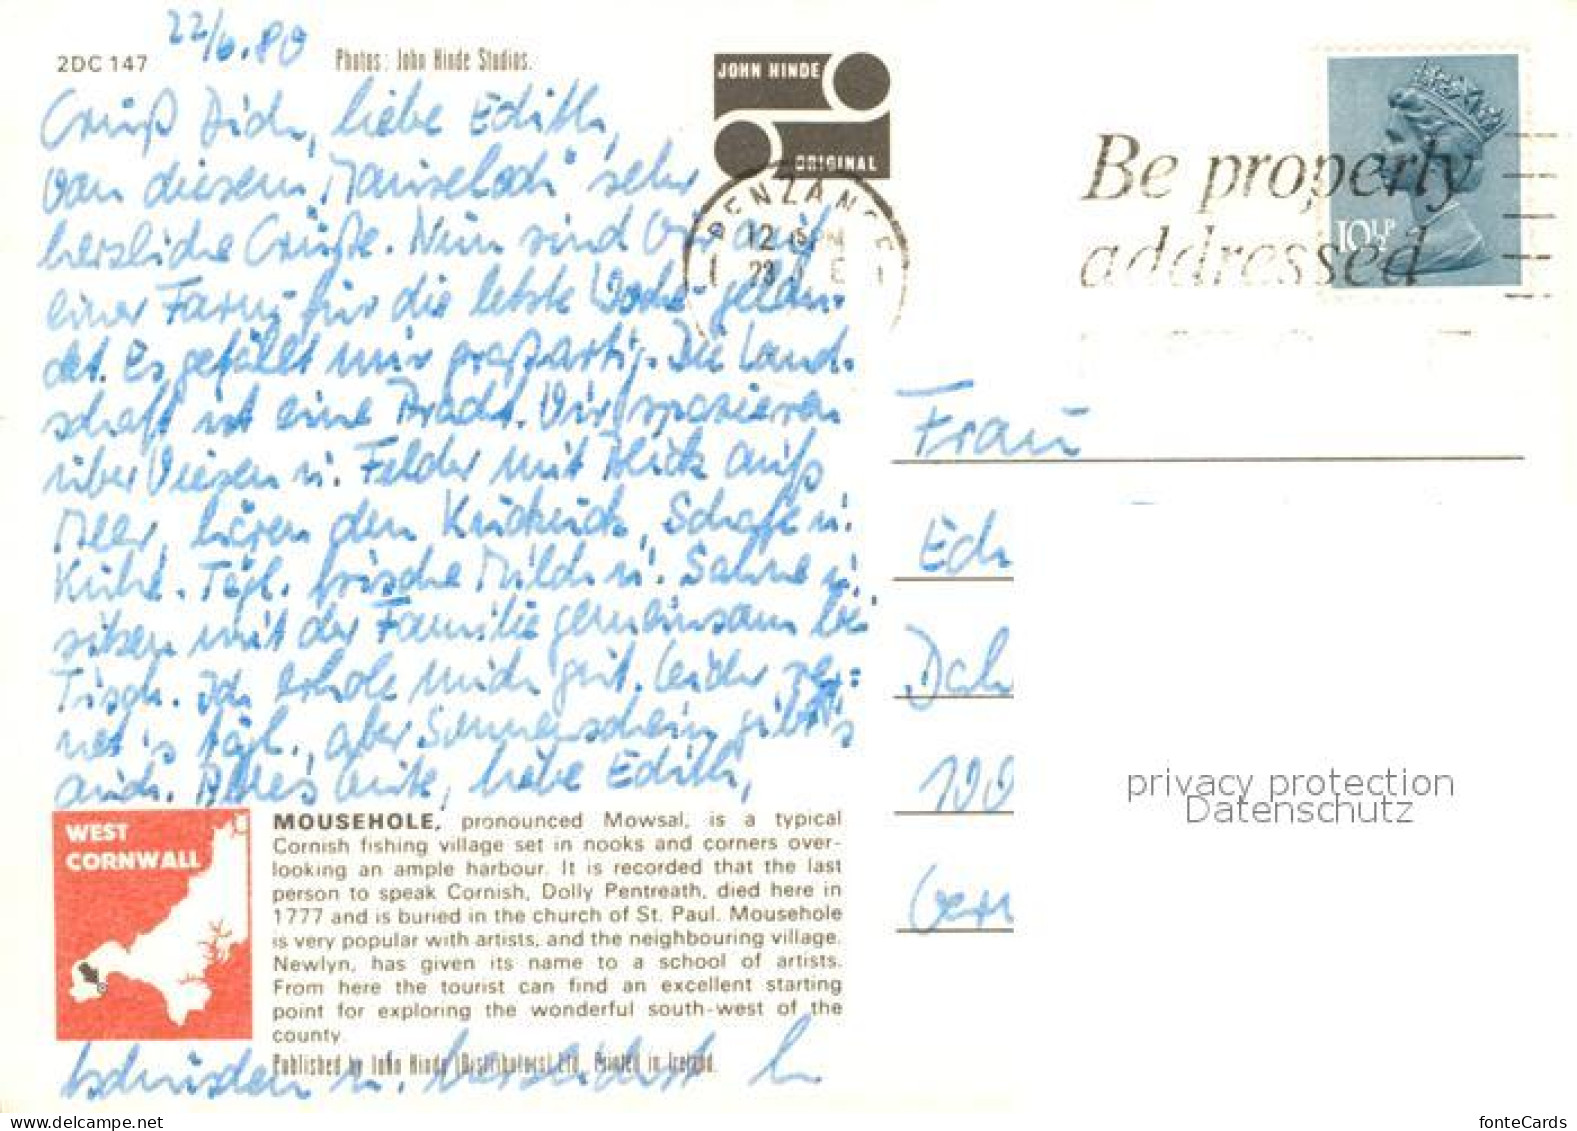 22/6.80
2DC 147
Photos: John Hinde Studios.
JOHN HINDE
ORIGINAL
Grüß Dich, liebe Edith,
von diesem „Mauseloch" sehr
herzliche Grüße. Nun sind wir auf
einer Farm für die letzte Woche gelan-
det. Es gefällt mir großartig. Die Land-
schaft ist eine Pracht. Wir spazieren
über Wiesen u. Felder mit Blick aufs
Meer, hören den Kuckuck, Schafe u.
Kühe. Tägl. frische Milch u. Sahne u.
sitzen mit der Familie gemeinsam bei
Tisch. Ich erhole mich gut. Leider reg=
net's tägl., aber Sonnenschein gibt's
auch. Alles Gute, liebe Edith,
PENZANCE
12
23
Be properly
addressed
10½P
Frau
Ed
Dah
100
WEST
CORNWALL
MOUSEHOLE, pronounced Mowsal, is a typical
Cornish fishing village set in nooks and corners over-
looking an ample harbour. It is recorded that the last
person to speak Cornish, Dolly Pentreath, died here in
1777 and is buried in the church of St. Paul. Mousehole
is very popular with artists, and the neighbouring village,
Newlyn, has given its name to a school of artists.
From here the tourist can find an excellent starting
point for exploring the wonderful south-west of the
county.
Published by John Hinde (Distributors) Ltd., Printed in Ireland.
u. herzlichst
privacy protection
Datenschutz
fonteCards